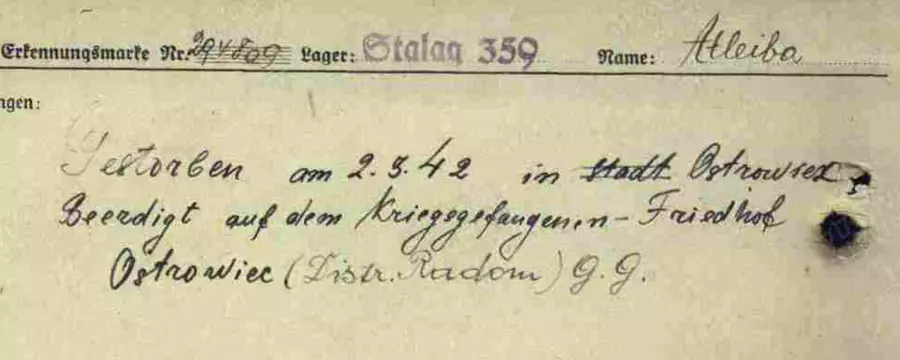 Erkennungsmarke Nr. Lager: Stalag 359 Name: Atleiba
ngen:
Gestorben am 2.3.42 in stadt Ostrowiec
Beerdigt auf dem Kriegsgefangenen-Friedhof
Ostrowiec (Distr. Radom) G.G.